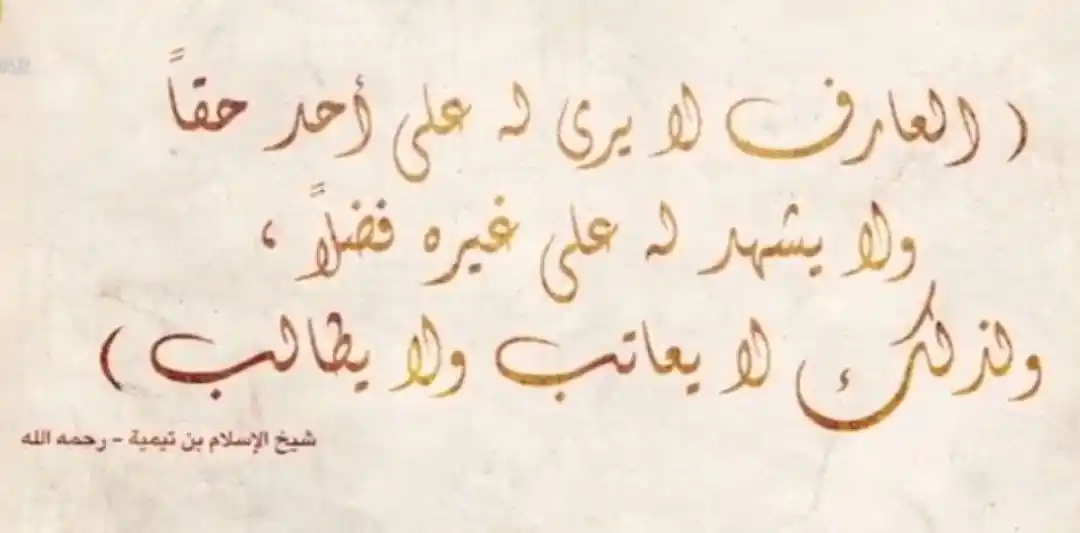 ( العارف لا يرى له على أحد حقاً
ولا يشهد له على غيره فضلاً ،
ولذلك لا يعاتب ولا يطالب )
شيخ الإسلام بن تيمية - رحمه الله